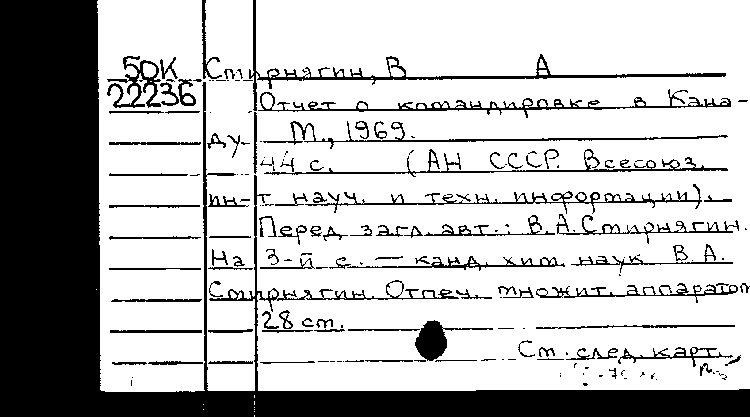 50К Стирнягин, В А
22236 Отчет о командировке в Кана-
ду. М., 1969.
44 с. (АН СССР. Всесоюз.
ин-т науч. и техн. информации).
Перед загл. авт.: В.А.Стирнягин.
На 3-й с. — канд. хим. наук В.А.
Стирнягин. Отпеч. множит. аппаратом
28 cm.
См. след. карт.